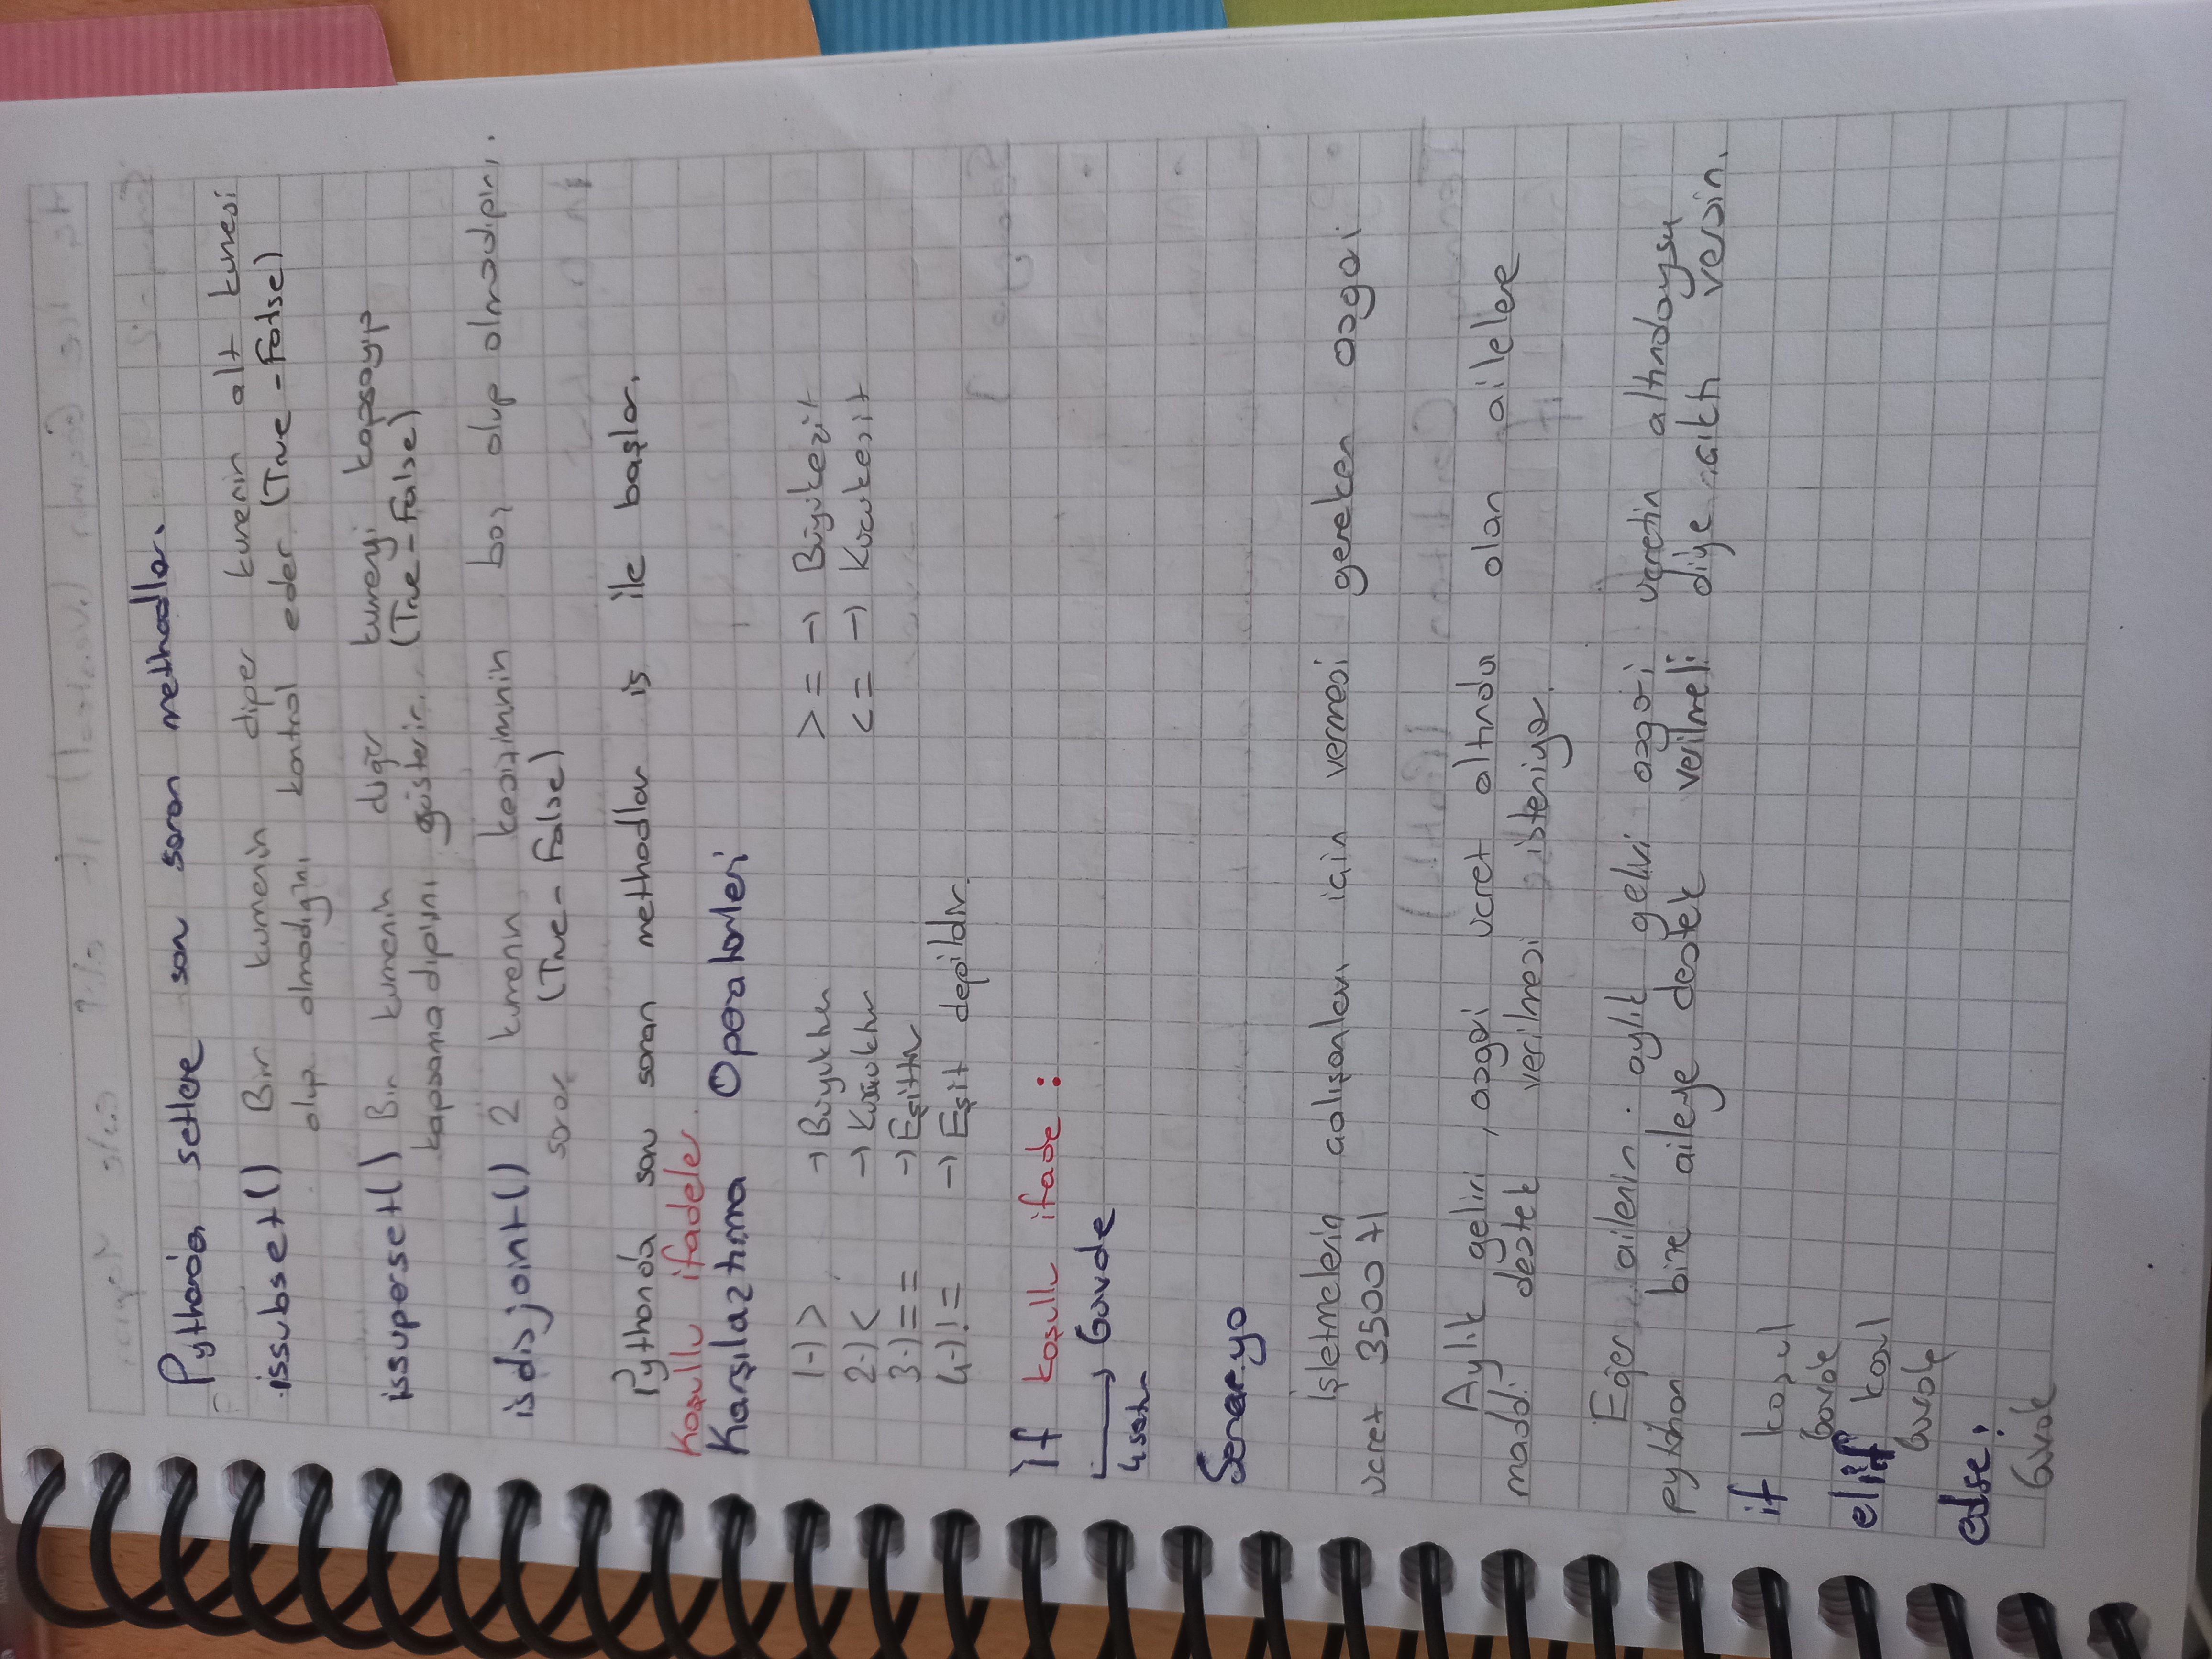 Python'da setlere soru soran methodlar.
issubset() Bir kumenin diğer kumenin alt kumesi
olup olmadığını kontrol eder (True - False)
issuperset() Bir kumenin diğer kumeyi kapsayıp
kapsamadığını gösterir. (True - False)
isdisjoint() 2 kumenin kesizimnin boş olup olmadığını
sorar (True - False)
Python'da soru soran methodlar is ile başlar.
Koşullu ifadeler.
Karşılaztırma Operatorleri
1-) > → Büyüktür >= → Büyükeşit
2-) < → Kuçuktur <= → Kucukeşit
3-) == → Eşittir
4-) != → Eşit değildir.
if koşullu ifade :
→ Govde
4 satır
Senaryo
İşletmelerin çalışanları için vermesi gereken asgari
ucret 3500 tl
Aylık geliri, asgari ucret altında olan ailelere
maddi destek verilmesi isteniyor.
Eğer ailenin aylık geliri asgari ucretin altındaysa
python bize aileye destek verilmeli diye çıktı versin.
if koşul
Govde
elif koşul
Govde
else:
Govde